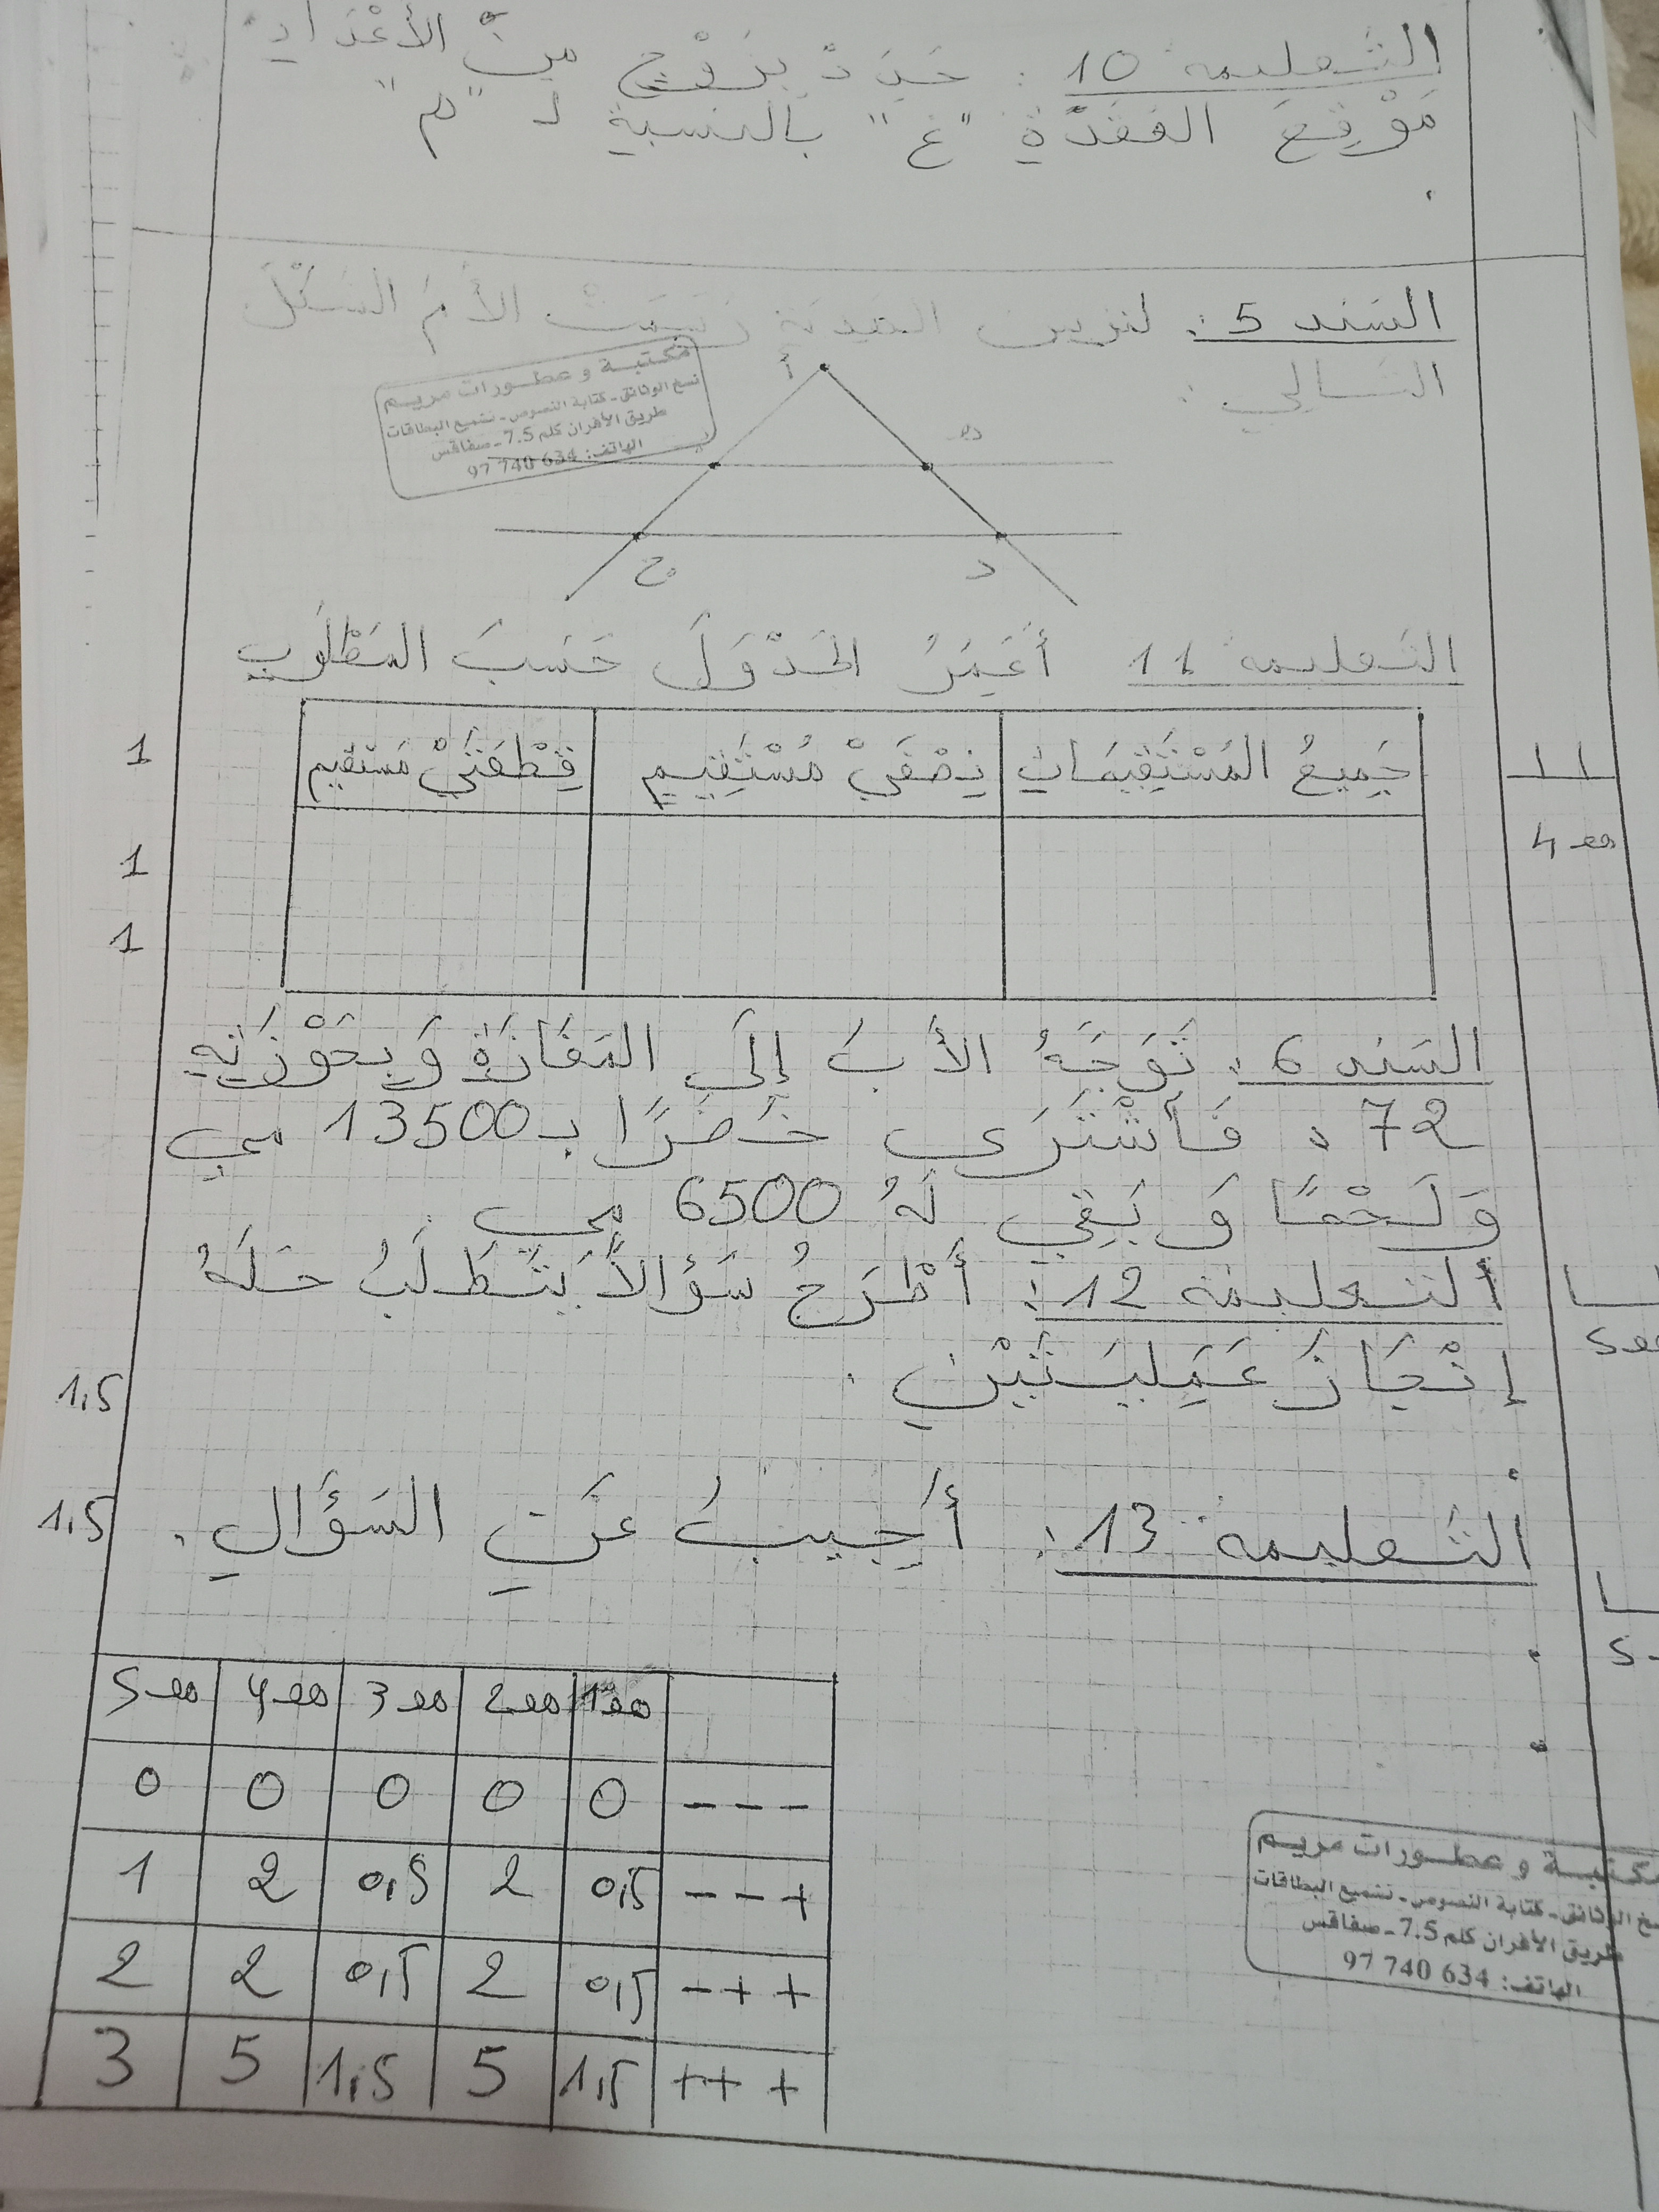 التعليمة 10 : حدد بزوج من الأعداد
موقع العقدة "غ" بالنسبة لـ "م"
.
السند 5 : لتزيين المدينة رسمت الأم الشكل
التالي :
أ
مكتبة و عطورات مريم
نسخ الوثائق - كتابة النصوص - تشميع البطاقات
طريق الأفران كلم 7.5 - صفاقس
الهاتف: 634 740 97
هـ
ح د
التعليمة 11 أعمر الجدول حسب المطلوب
جميع المستقيمات نصفي مستقيم قطعتي مستقيم
1
1
1
11
مع 4
السند 6 : توجه الأب إلى المغازة وبحوزته
72 د فاشترى خضرا بـ 13500 مي
ولحما و بقي له 6500 مي .
التعليمة 12 : أطرح سؤالا يتطلب حله
إنجاز عمليتين .
1,5
مع 5
التعليمة 13 : أجيب عن السؤال .
1,5
مع1 مع2 مع3 مع4 مع5
--- 0 0 0 0 0
--+ 0,5 2 0,5 2 1
-++ 0,5 2 0,5 2 2
+++ 1,5 5 1,5 5 3
مكتبة و عطورات مريم
نسخ الوثائق - كتابة النصوص - تشميع البطاقات
طريق الأفران كلم 7.5 - صفاقس
الهاتف: 634 740 97